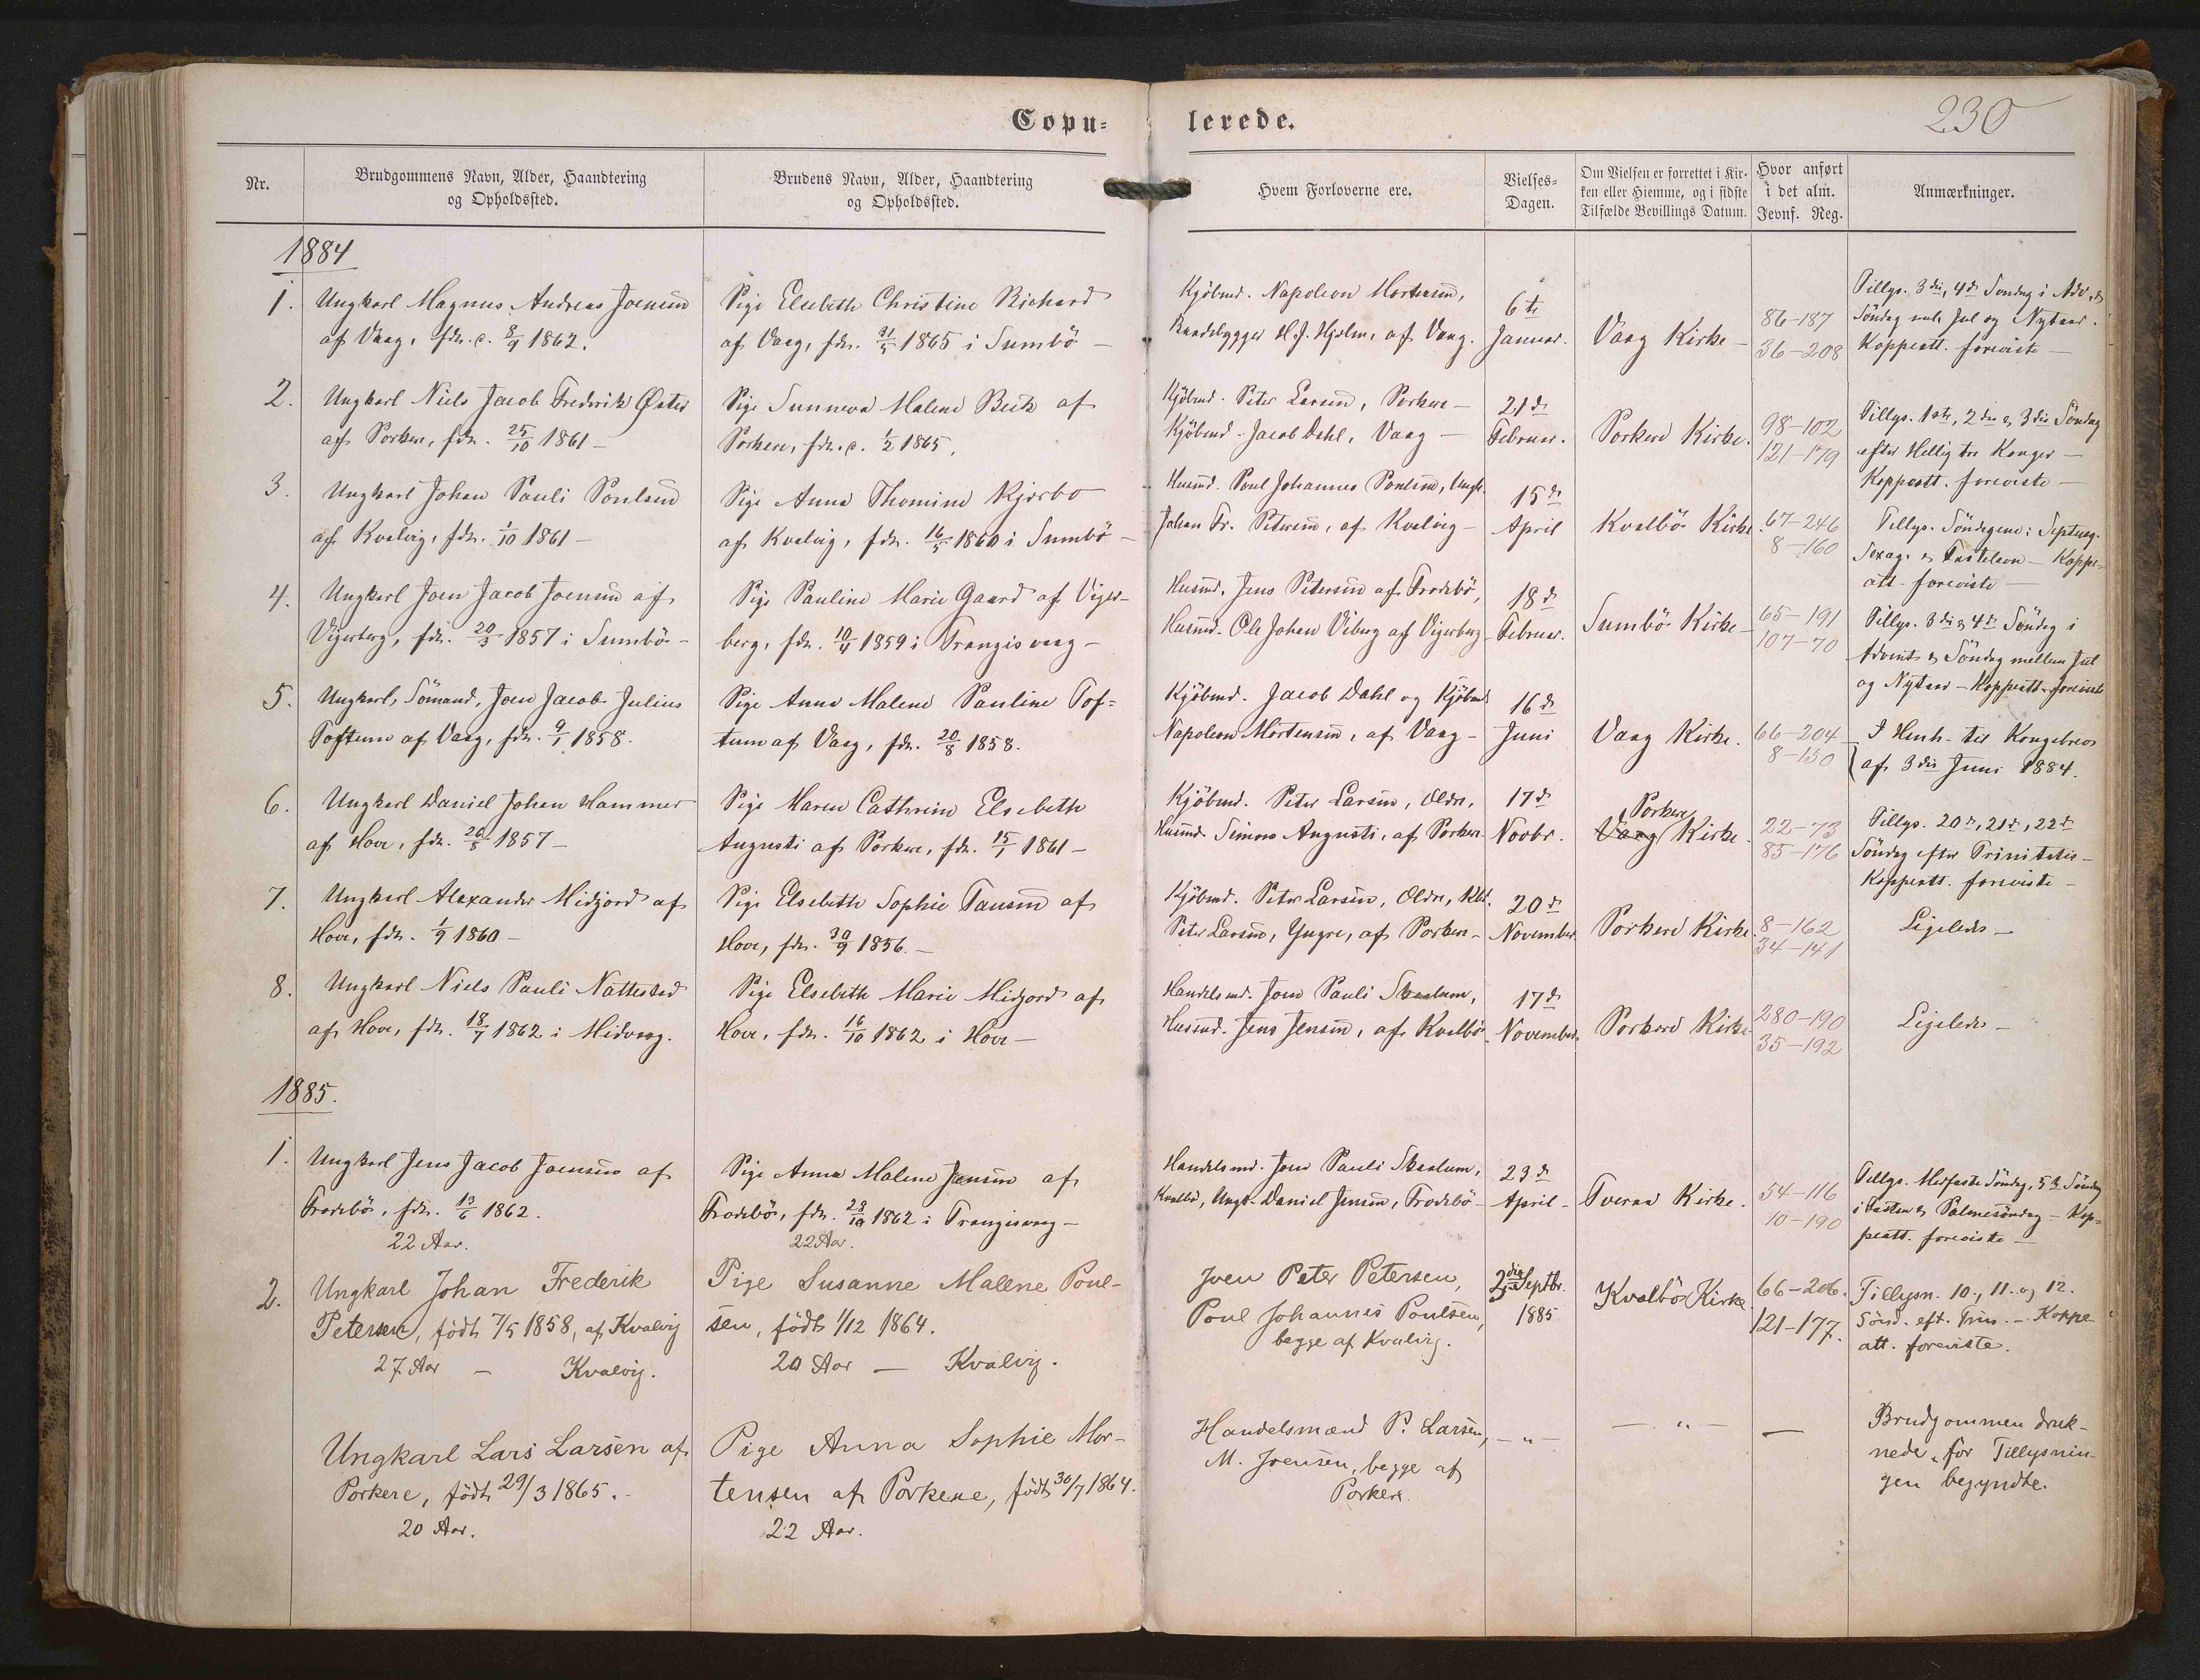 Copu-
lerede.
230
Nr.
Brudgommens Navn, Alder, Haandtering
og Opholdssted.
Brudens Navn, Alder, Haandtering
og Opholdssted.
Hvem Forloverne ere.
Vielses-
Dagen.
Om Vielsen er forrettet i Kir-
ken eller Hjemme, og i sidste
Tilfælde Bevillings Datum.
Hvor anført
i det alm.
Jevnf. Reg.
Anmærkninger.
1884
1.
Ungkarl Magnus Andreas Joensen
af Vaag, fdt. c. 8/9 1862.
Pige Elsebeth Christine Richard
af Vaag, fdt. 21/5 1865 i Sumbö —
Kjöbmd. Napoleon Mortensen,
Baadebygger H. J. Hjelm, af Vaag.
6te
Januar.
Vaag Kirke —
86—187
36—208
Tillys. 3die, 4de Søndag i Adv. &
Söndag mell. Jul og Nytaar.
Koppeatt. foreviste —
2.
Ungkarl Niels Jacob Fredrik Øster
af Porkere, fdt. 25/10 1861 —
Pige Sunneva Malene Beck af
Porkere, fdt. c. 1/2 1865.
Kjöbmd. Peter Larsen, Porkere —
Kjöbmd. Jacob Dahl, Vaag —
21de
Februar.
Porkere Kirke.
98—102
121—179
Tillys. 1ste, 2den & 3die Söndag
efter Hellig tre Konger —
Koppeatt. foreviste —
3.
Ungkarl Johan Pauli Poulsen
af Kvalvig, fdt. 1/10 1861 —
Pige Anna Thomine Kjærbo
af Kvalvig, fdt. 16/5 1860 i Sumbö —
Husmd. Poul Johannes Poulsen, Ungk.
Johan Fr. Petersen, af Kvalvig —
15de
April
Kvalbö Kirke.
67—246
8—160
Tillys. Söndagene: Septuag.
Sexag. & Fastelavn — Koppe-
att. foreviste —
4.
Ungkarl Joen Jacob Joensen af
Vigerberg, fdt. 20/3 1857 i Sumbö —
Pige Pauline Marie Gaard af Viger-
berg, fdt. 10/4 1859 i Trangisvaag —
Husmd. Jens Petersen af Frodebö,
Husmd. Ole Johan Viberg af Vigerberg —
18de
Februar.
Sumbö Kirke —
65—191
107—70
Tillys. 3die & 4de Söndag i
Advent & Söndag mellem Jul
og Nytaar — Koppeatt. foreviste
5.
Ungkarl, Sömand, Joen Jacob Julius
Toftum af Vaag, fdt. 9/1 1858.
Pige Anna Malene Pauline Tof-
tum af Vaag, fdt. 20/8 1858.
Kjöbmd. Jacob Dahl og Kjöbmd
Napoleon Mortensen, af Vaag —
16de
Juni
Vaag Kirke.
66—204
8—150
I Henh. til Kongebrev
af 3die Juni 1884.
6.
Ungkarl Daniel Johan Hammer
af Hove, fdt. 26/8 1857 —
Pige Maren Cathrine Elsebeth
Augusti af Porkere, fdt. 15/1 1861 —
Kjöbmd. Peter Larsen, Ældre,
Husmd. Simon Augusti, af Porkere
17de
Novbr.
Porkere
Vaag Kirke.
22—73
85—176
Tillys. 20de, 21de, 22de
Söndag efter Trinitatis —
Koppeatt. foreviste —
7.
Ungkarl Alexander Midjord af
Hove, fdt. 1/9 1860 —
Pige Elsebeth Sophie Tausen af
Hove, fdt. 30/9 1856. —
Kjöbmd. Peter Larsen, Ældre,
Peter Larsen, Yngre, af Porkere —
20de
November
Porkere Kirke.
8—162
34—141
Ligeledes —
8.
Ungkarl Niels Pauli Nattestad
af Hove, fdt. 18/7 1862 i Midvaag.
Pige Elsebeth Marie Midjord af
Hove, fdt. 16/10 1862 i Hove —
Handelsmd. Joen Pauli Skaalum,
Husmd. Jens Jensen, af Kvalbö.
17de
November
Porkere Kirke
280—190
35—192
Ligeledes —
1885.
1.
Ungkarl Jens Jacob Joensen af
Frodebö, fdt. 13/6 1862.
22 Aar.
Pige Anna Malene Jensen af
Frodebö, fdt. 28/10 1862 i Trangisvaag —
22 Aar.
Handelsmd. Joen Pauli Skaalum,
Kvalbö, Ungk. Daniel Jensen, Frodebö —
23de
April —
Tveraa Kirke.
54—116
10—190
Tillys. Midfaste Söndag, 5te Söndag
i Fasten & Palmesöndag — Kop-
peatt. foreviste —
2.
Ungkarl Johan Frederik
Petersen, födt 7/5 1858, af Kvalvig
27 Aar — Kvalvig.
Pige Susanne Malene Poul-
sen, födt 1/12 1864.
20 Aar — Kvalvig.
Joen Peter Petersen,
Poul Johannes Poulsen,
begge af Kvalvig.
2den Septbr.
1885
Kvalbö Kirke
66—206.
121—177.
Tillysn. 10., 11. og 12.
Sönd. eft. Trin. — Koppe-
att. foreviste.
Ungkarl Lars Larsen af
Porkere, födt 29/3 1865.
20 Aar.
Pige Anna Sophie Mor-
tensen af Porkere, födt 30/7 1864.
22 Aar.
Handelsmænd P. Larsen,
M. Joensen, begge af
Porkere.
— " —
— " —
—
Brudgommen druk-
nede, för Tillysnin-
gen begyndte.